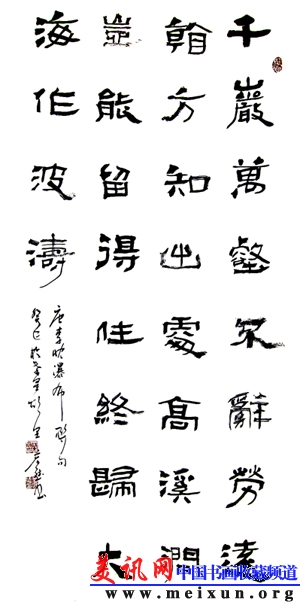 千巖萬壑不辭勞遠
看方知出處高溪澗
豈能留得住終歸大
海作波濤
唐李忱瀑布聯句
癸巳
美讯网
中国书画收藏频道
www.meixun.org